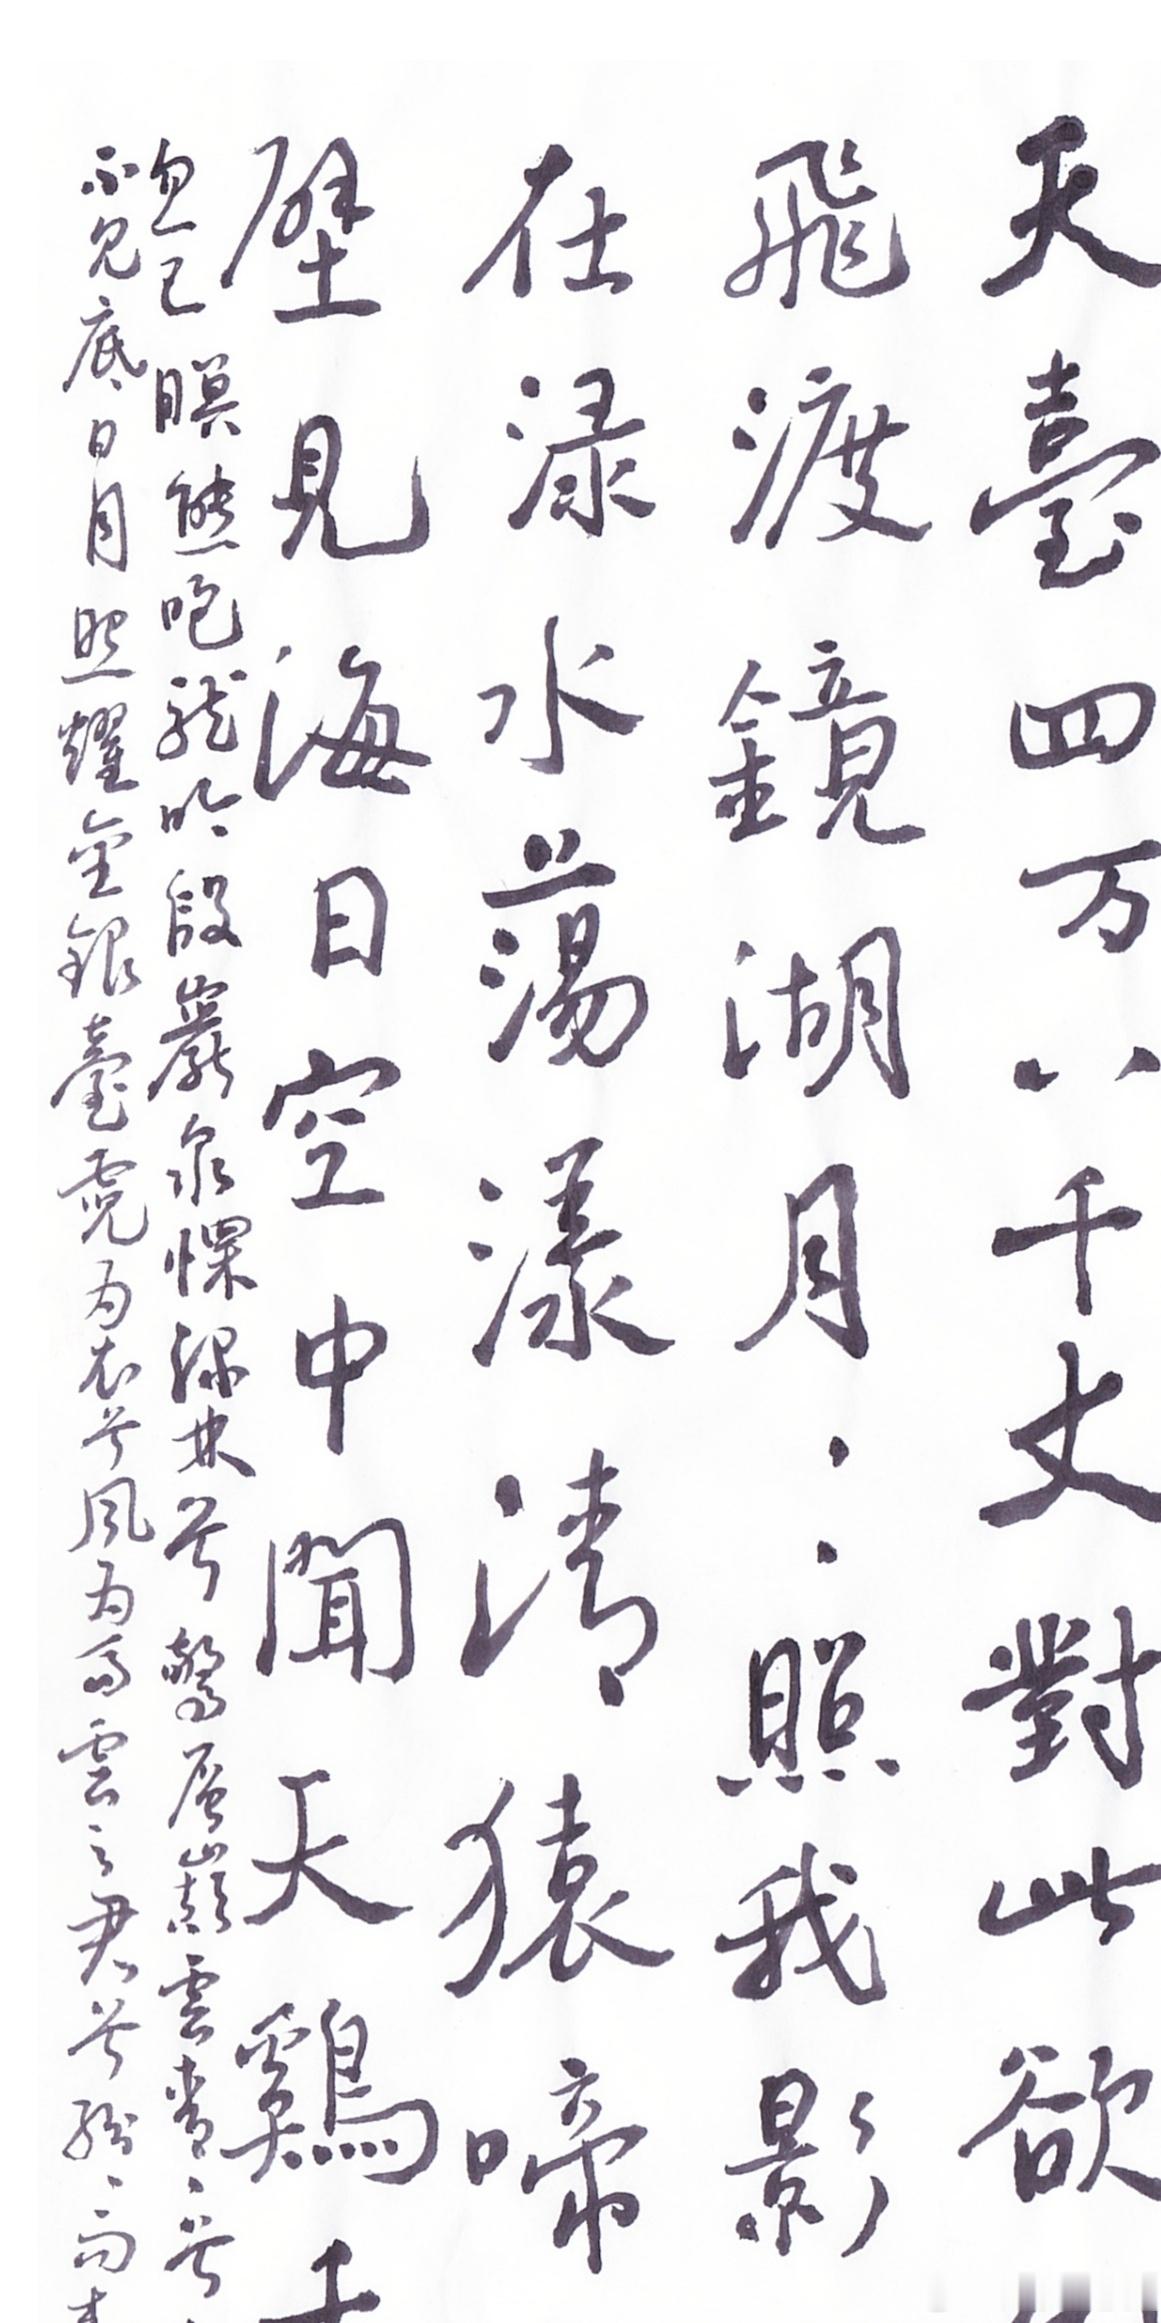 天臺四万八千丈對此欲
飛渡鏡湖月ミ照我影
在淥水蕩漾清猿啼
壁見海日空中聞天鷄
忽已瞑熊咆龍吟殷巖泉慄深林兮驚層巔雲青ミ兮
不見底日月照耀金銀臺霓为衣兮風为馬雲之君兮紛ミ而